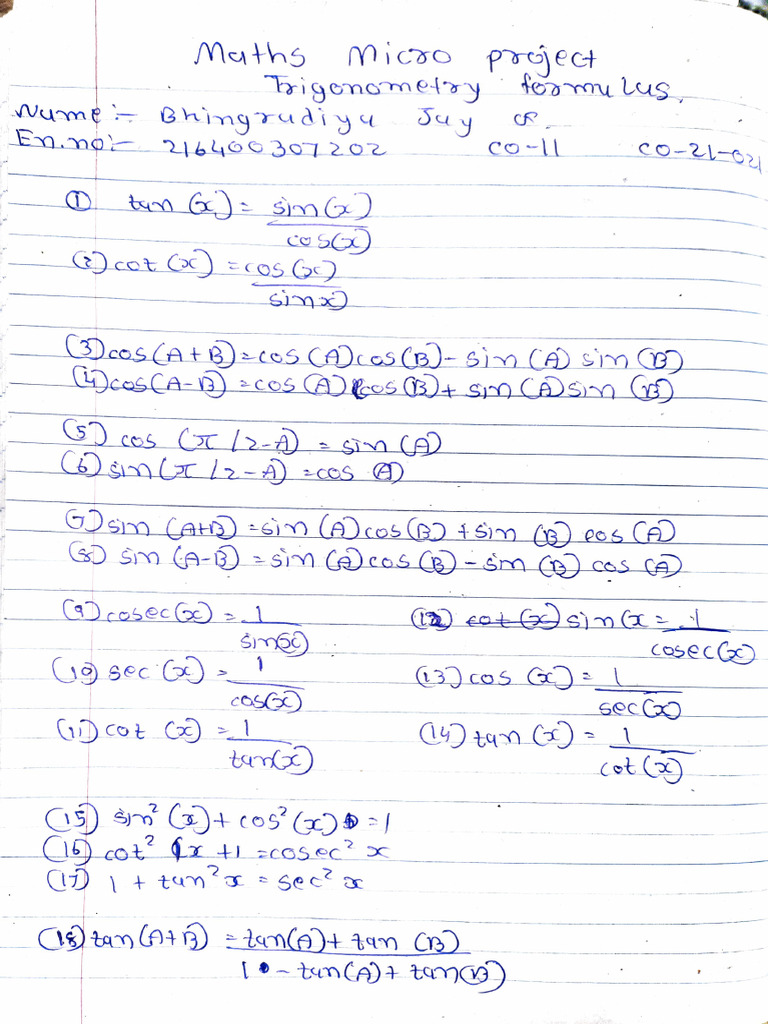 Maths Micro project
Trigonometry formulas.
Name:- Bhingradiya Jay
En.no:- 216400307202 CO-11 CO-21-021
① tan (x) = sin(x)/cos(x)
(2) cot (x) = cos(x)/sinx)
(3) cos(A+B)=cos(A)cos(B)- sin(A) sin(B)
(4) cos(A-B)=cos(A)cos(B)+ sin(A)sin(B)
(5) cos (π/2-A) = sin(A)
(6) sin(π/2-A) =cos A)
7) sin (A+B) =sin(A)cos(B) +sin(B) cos(A)
(8) sin (A-B) =sin(A)cos(B)-sin(B) cos(A)
(9) cosec(x) = 1/sin(x) (12) cot(x) sin(x = 1/cosec(x)
(10) sec (x) = 1/cos(x) (13) cos (x) = 1/sec(x)
(11) cot (x) = 1/tan(x) (14) tan (x) = 1/cot(x)
(15) sin² (x) + cos² (x) =1
(16) cot² x +1 =cosec² x
(17) 1 + tan² x = sec² x
(18) tan(A+B) = tan(A)+ tan (B)/1 - tan(A)+ tan(B)